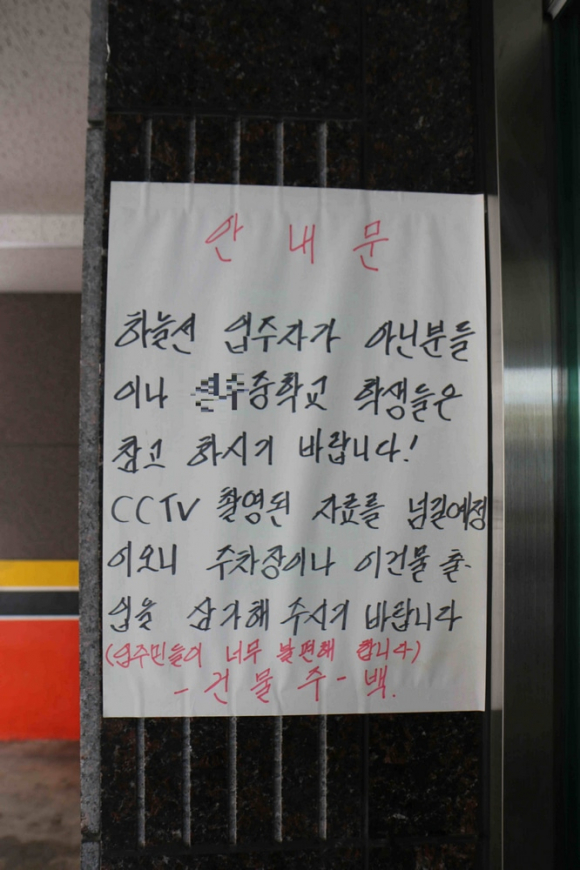 안 내 문
하늘션 입주자가 아닌분들
이나 중학교 학생들은
참고 하시기 바랍니다!
CCTV 촬영된 자료를 넘길예정
이오니 주차장이나 이건물 출-
입을 삼가해 주시기 바랍니다
(입주민들이 너무 불편해 합니다)
- 건 물 주 - 백.